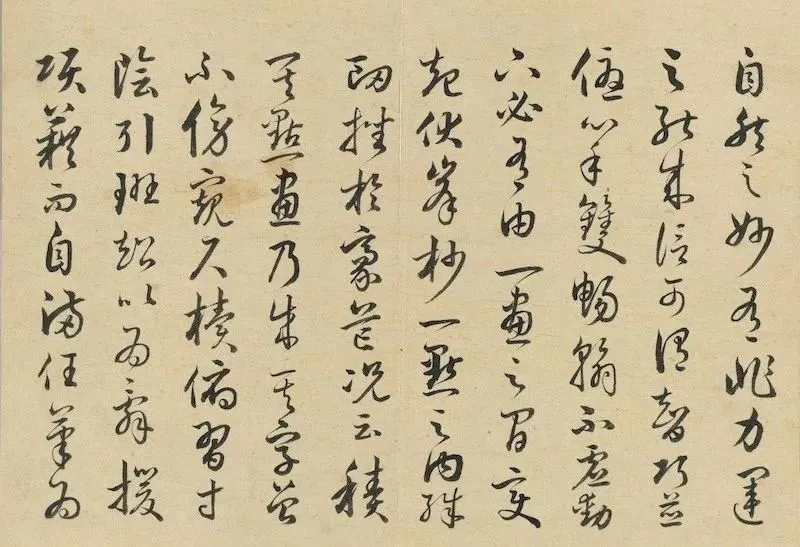 自然之妙有非力運
之能成信可謂智巧兼
優心手雙暢翰不虛動
下必有由一畫之間變
起伏峯杪一點之內殊
衄挫於豪芒況云積
其點畫乃成其字曾
不傍窺尺牘俯習寸
陰引班超以為辭援
項籍而自滿任筆為